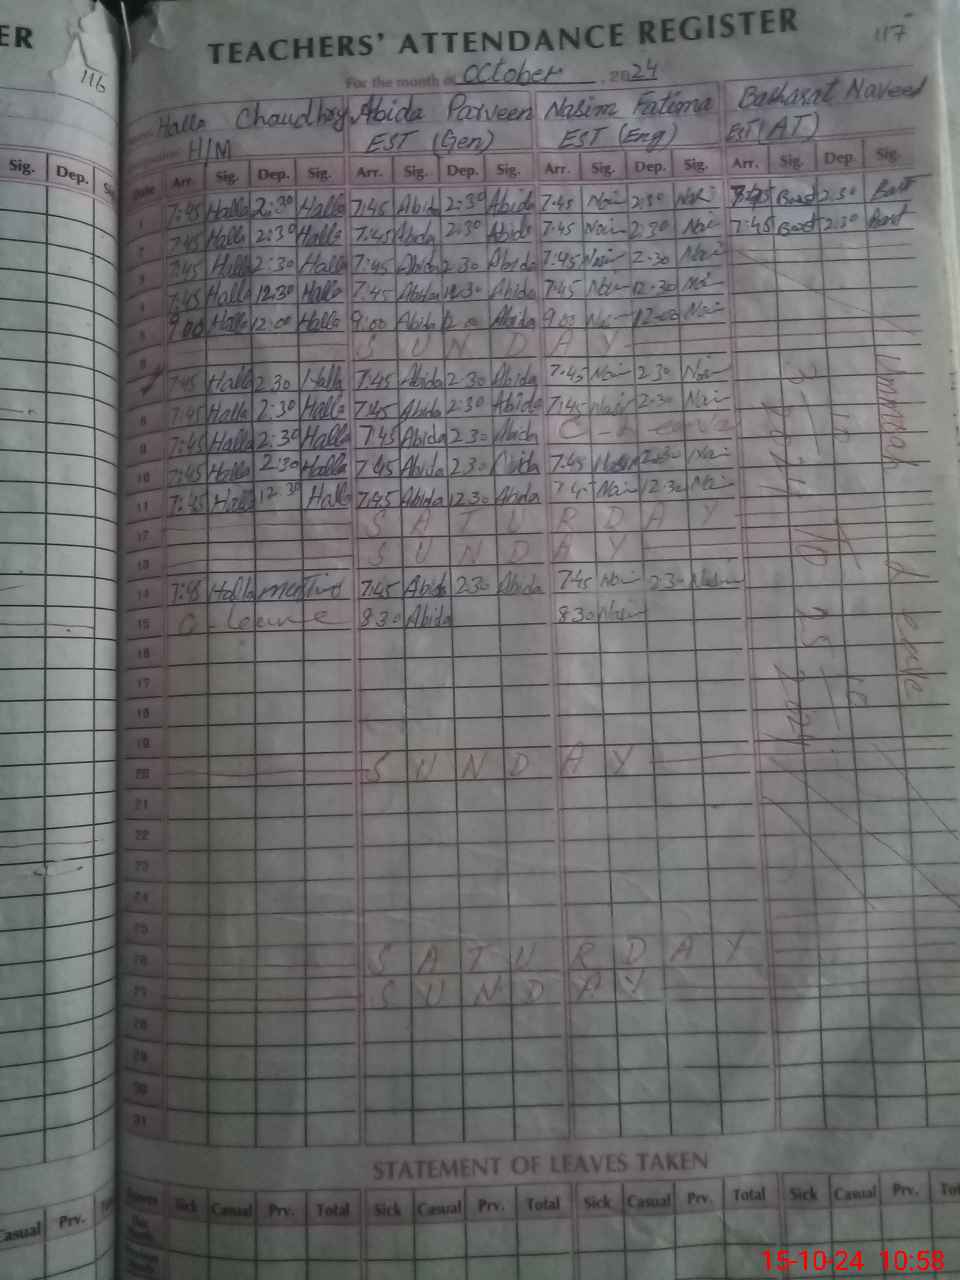 ER
116
TEACHERS' ATTENDANCE REGISTER
117
For the month of October 2024
Halla Chaudhry Abida Parveen Nasim Fatima Basharat Naveed
H/M EST (Gen) EST (Eng) EST (AT)
Sig. Dep. Date Arr. Sig. Dep. Sig. Arr. Sig. Dep. Sig. Arr. Sig. Dep. Sig. Arr. Sig. Dep. Sig.
1 7:45 Halla 2:30 Halla 7:45 Abida 2:30 Abida 7:45 2:30 7:45 2:30
2 7:45 Halla 2:30 Halla 7:45 Abida 2:30 Abida 7:45 2:30 7:45 2:30
3 7:45 Halla 2:30 Halla 7:45 Abida 2:30 Abida 7:45 2:30
4 7:45 Halla 12:30 Halla 7:45 Abida 12:30 Abida 7:45 12:30
5 9:00 Halla 12:00 Halla 9:00 Abida 12:00 Abida 9:00 12:00
6 SUNDAY
7 7:45 Halla 2:30 Halla 7:45 Abida 2:30 Abida 7:45 2:30
8 7:45 Halla 2:30 Halla 7:45 Abida 2:30 Abida 7:45 2:30
9 7:45 Halla 2:30 Halla 7:45 Abida 2:30 Abida C-Leave
10 7:45 Halla 2:30 Halla 7:45 Abida 2:30 Abida 7:45 2:30
11 7:45 Halla 12:30 Halla 7:45 Abida 12:30 Abida 7:45 12:30
12 SATURDAY
13 SUNDAY
14 7:45 Halla meeting 7:45 Abida 2:30 Abida 7:45 2:30
15 C-Leave 8:30 Abida 8:30
16
17
18
19
20 SUNDAY
21
22
23
24
25
26 SATURDAY
27 SUNDAY
28
29
30
31
Ummrah Leave
3-10-2024 To 25-10-2024
STATEMENT OF LEAVES TAKEN
Casual Prv. Leaves Sick Casual Prv. Total Sick Casual Prv. Total Sick Casual Prv. Total Sick Casual Prv.
15-10-24 10:58